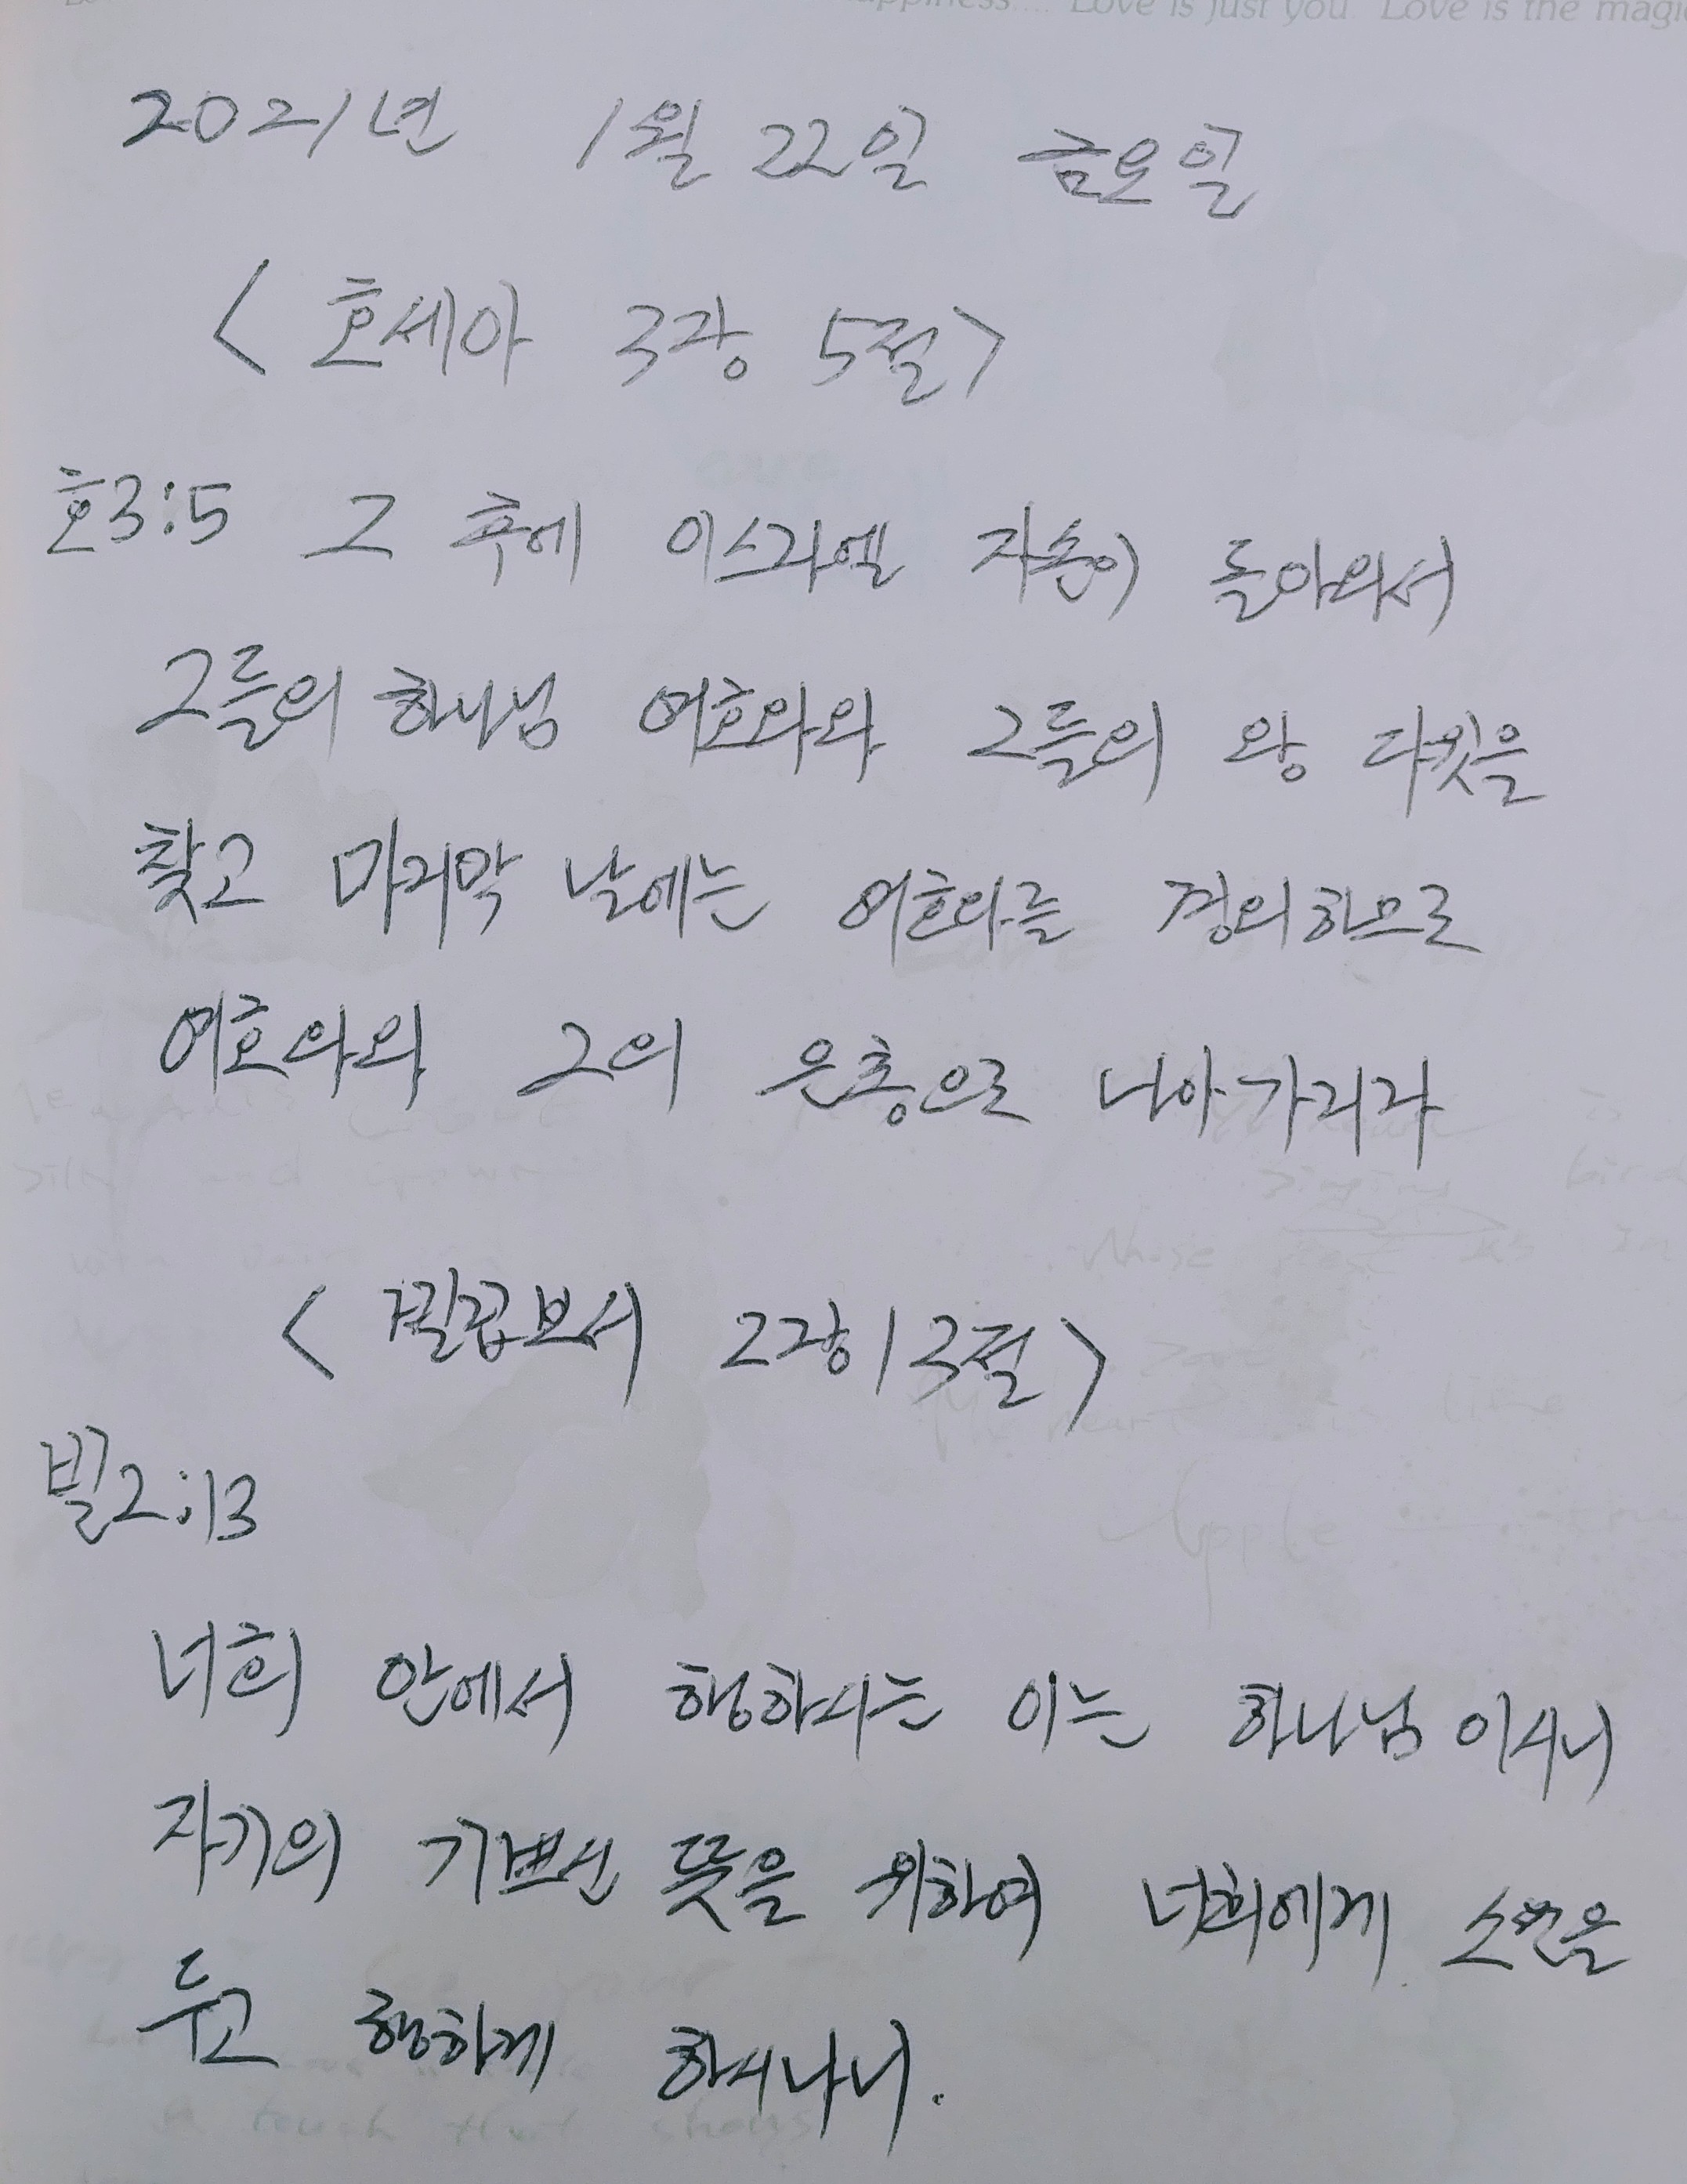 Love is just you Love is the magic
2021년 1월 22일 금요일
< 호세아 3장 5절 >
호3:5 그 후에 이스라엘 자손이 돌아와서
그들의 하나님 여호와와 그들의 왕 다윗을
찾고 마지막 날에는 여호와를 경외하므로
여호와와 그의 은총으로 나아가리라
< 빌립보서 2장 13절 >
빌2:13
너희 안에서 행하시는 이는 하나님 이시니
자기의 기쁘신 뜻을 위하여 너희에게 소원을
두고 행하게 하시나니.